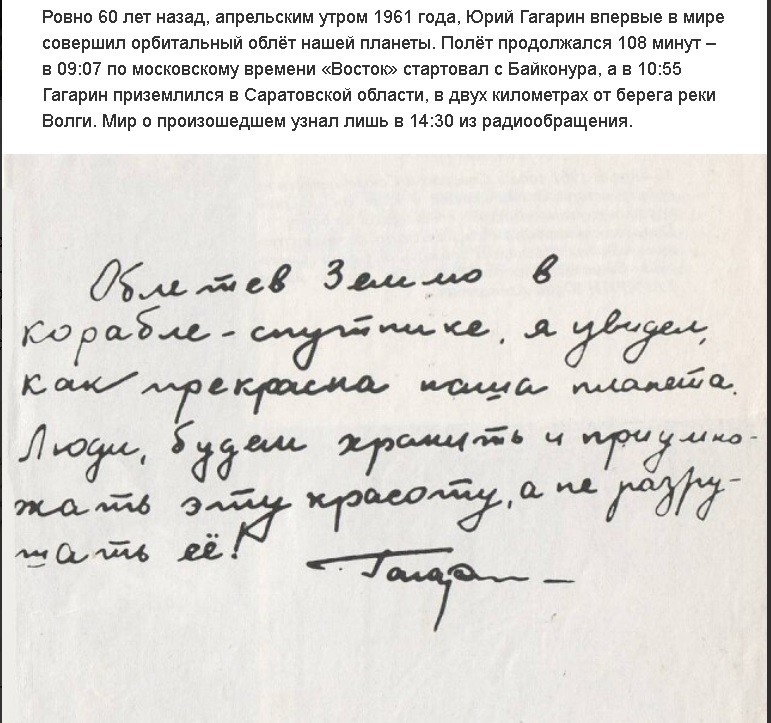 Ровно 60 лет назад, апрельским утром 1961 года, Юрий Гагарин впервые в мире
совершил орбитальный облёт нашей планеты. Полёт продолжался 108 минут –
в 09:07 по московскому времени «Восток» стартовал с Байконура, а в 10:55
Гагарин приземлился в Саратовской области, в двух километрах от берега реки
Волги. Мир о произошедшем узнал лишь в 14:30 из радиообращения.
Облетев Землю в
корабле-спутнике, я увидел,
как прекрасна наша планета.
Люди, будем хранить и приумно-
жать эту красоту, а не разру-
шать её!
Гагарин